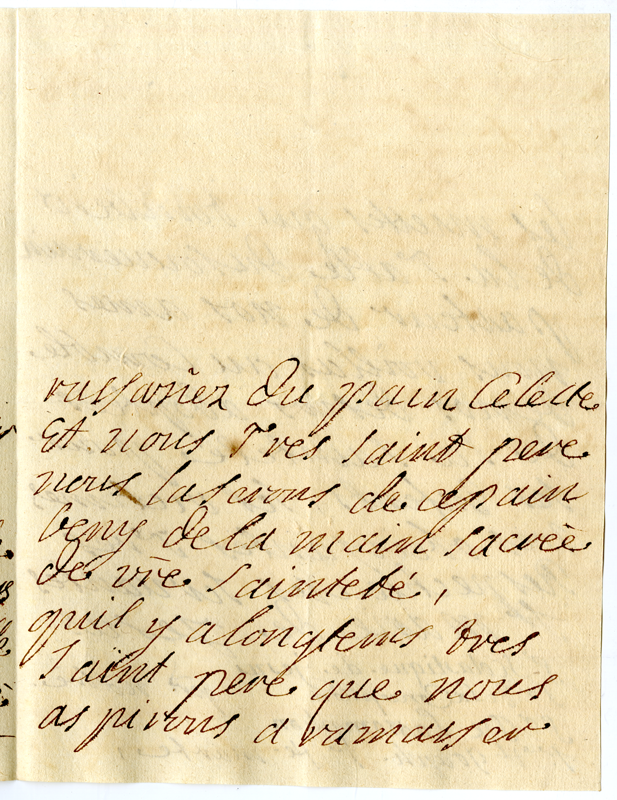 rassasiez du pain Celeste
Et nous Tres saint pere
nous de ce pain
beny de la main sacrée
de vre sainteté,
quil y a longtems tres
saint pere que nous
aspirons a ramasser